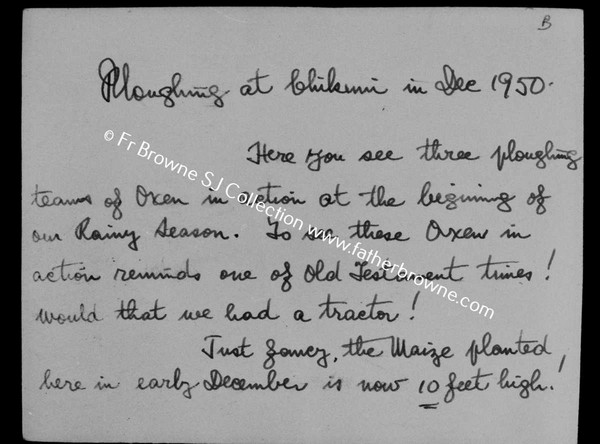 B
Ploughing at Chikuni in Dec 1950.
Here you see three ploughing
teams of Oxen in action at the begining of
our Rainy Season. To see these Oxen in
action reminds one of Old Testiment times!
Would that we had a tractor!
Just fancy, the Maize planted
here in early December is now 10 feet high!
© Fr Browne SJ Collection www.fatherbrowne.com